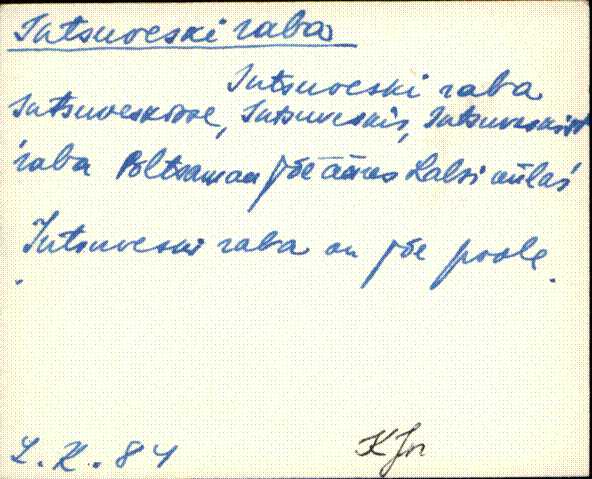 Intsuveski raba
Intsuveski raba
Intsuveskisse, Intsuveskis, Intsuveskist
raba Põltsamaa jõe ääres Lalsi külas
Intsuveski raba on jõe poole.
L. K. 84 KJn